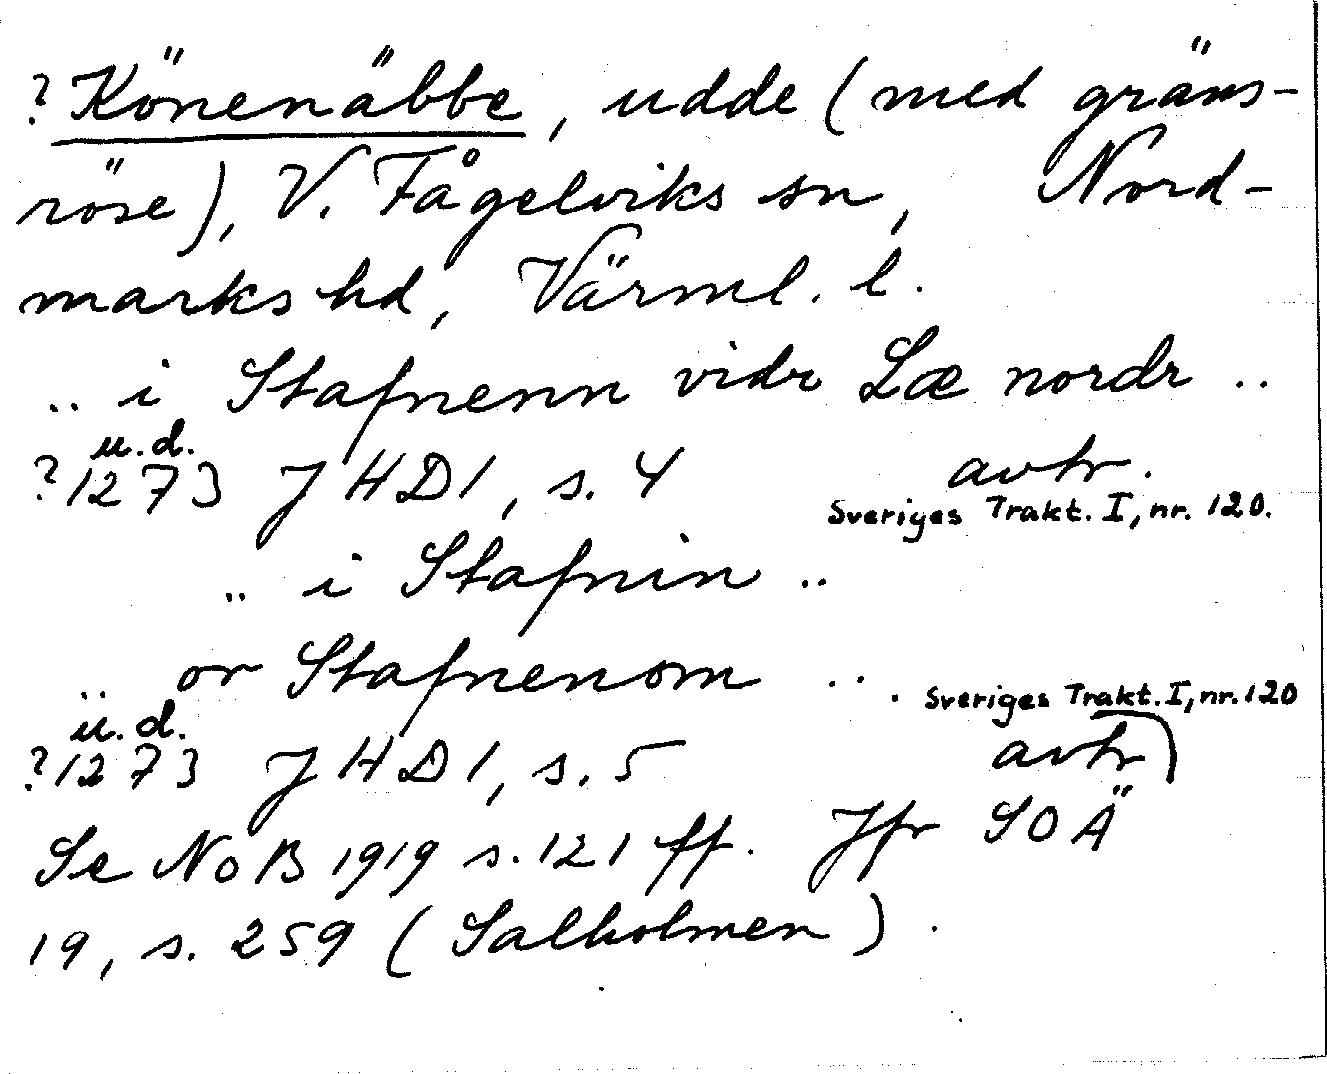 ? Könenäbbe, udde (med gräns-
röse), V. Fågelviks sn, Nord-
marks hd, Värml. l.
.. i Stafnenn vidr Læ nordr ..
u.d.
?1273 JHD1, s. 4 avtr.
Sveriges Trakt. I, nr. 120.
.. i Stafnin ..
.. or Stafnenom ...
Sveriges Trakt. I, nr. 120
u.d.
?1273 JHD1, s. 5 avtr)
Se NoB 1919 s. 121 ff. Jfr SOÄ
19, s. 259 (Salholmen).